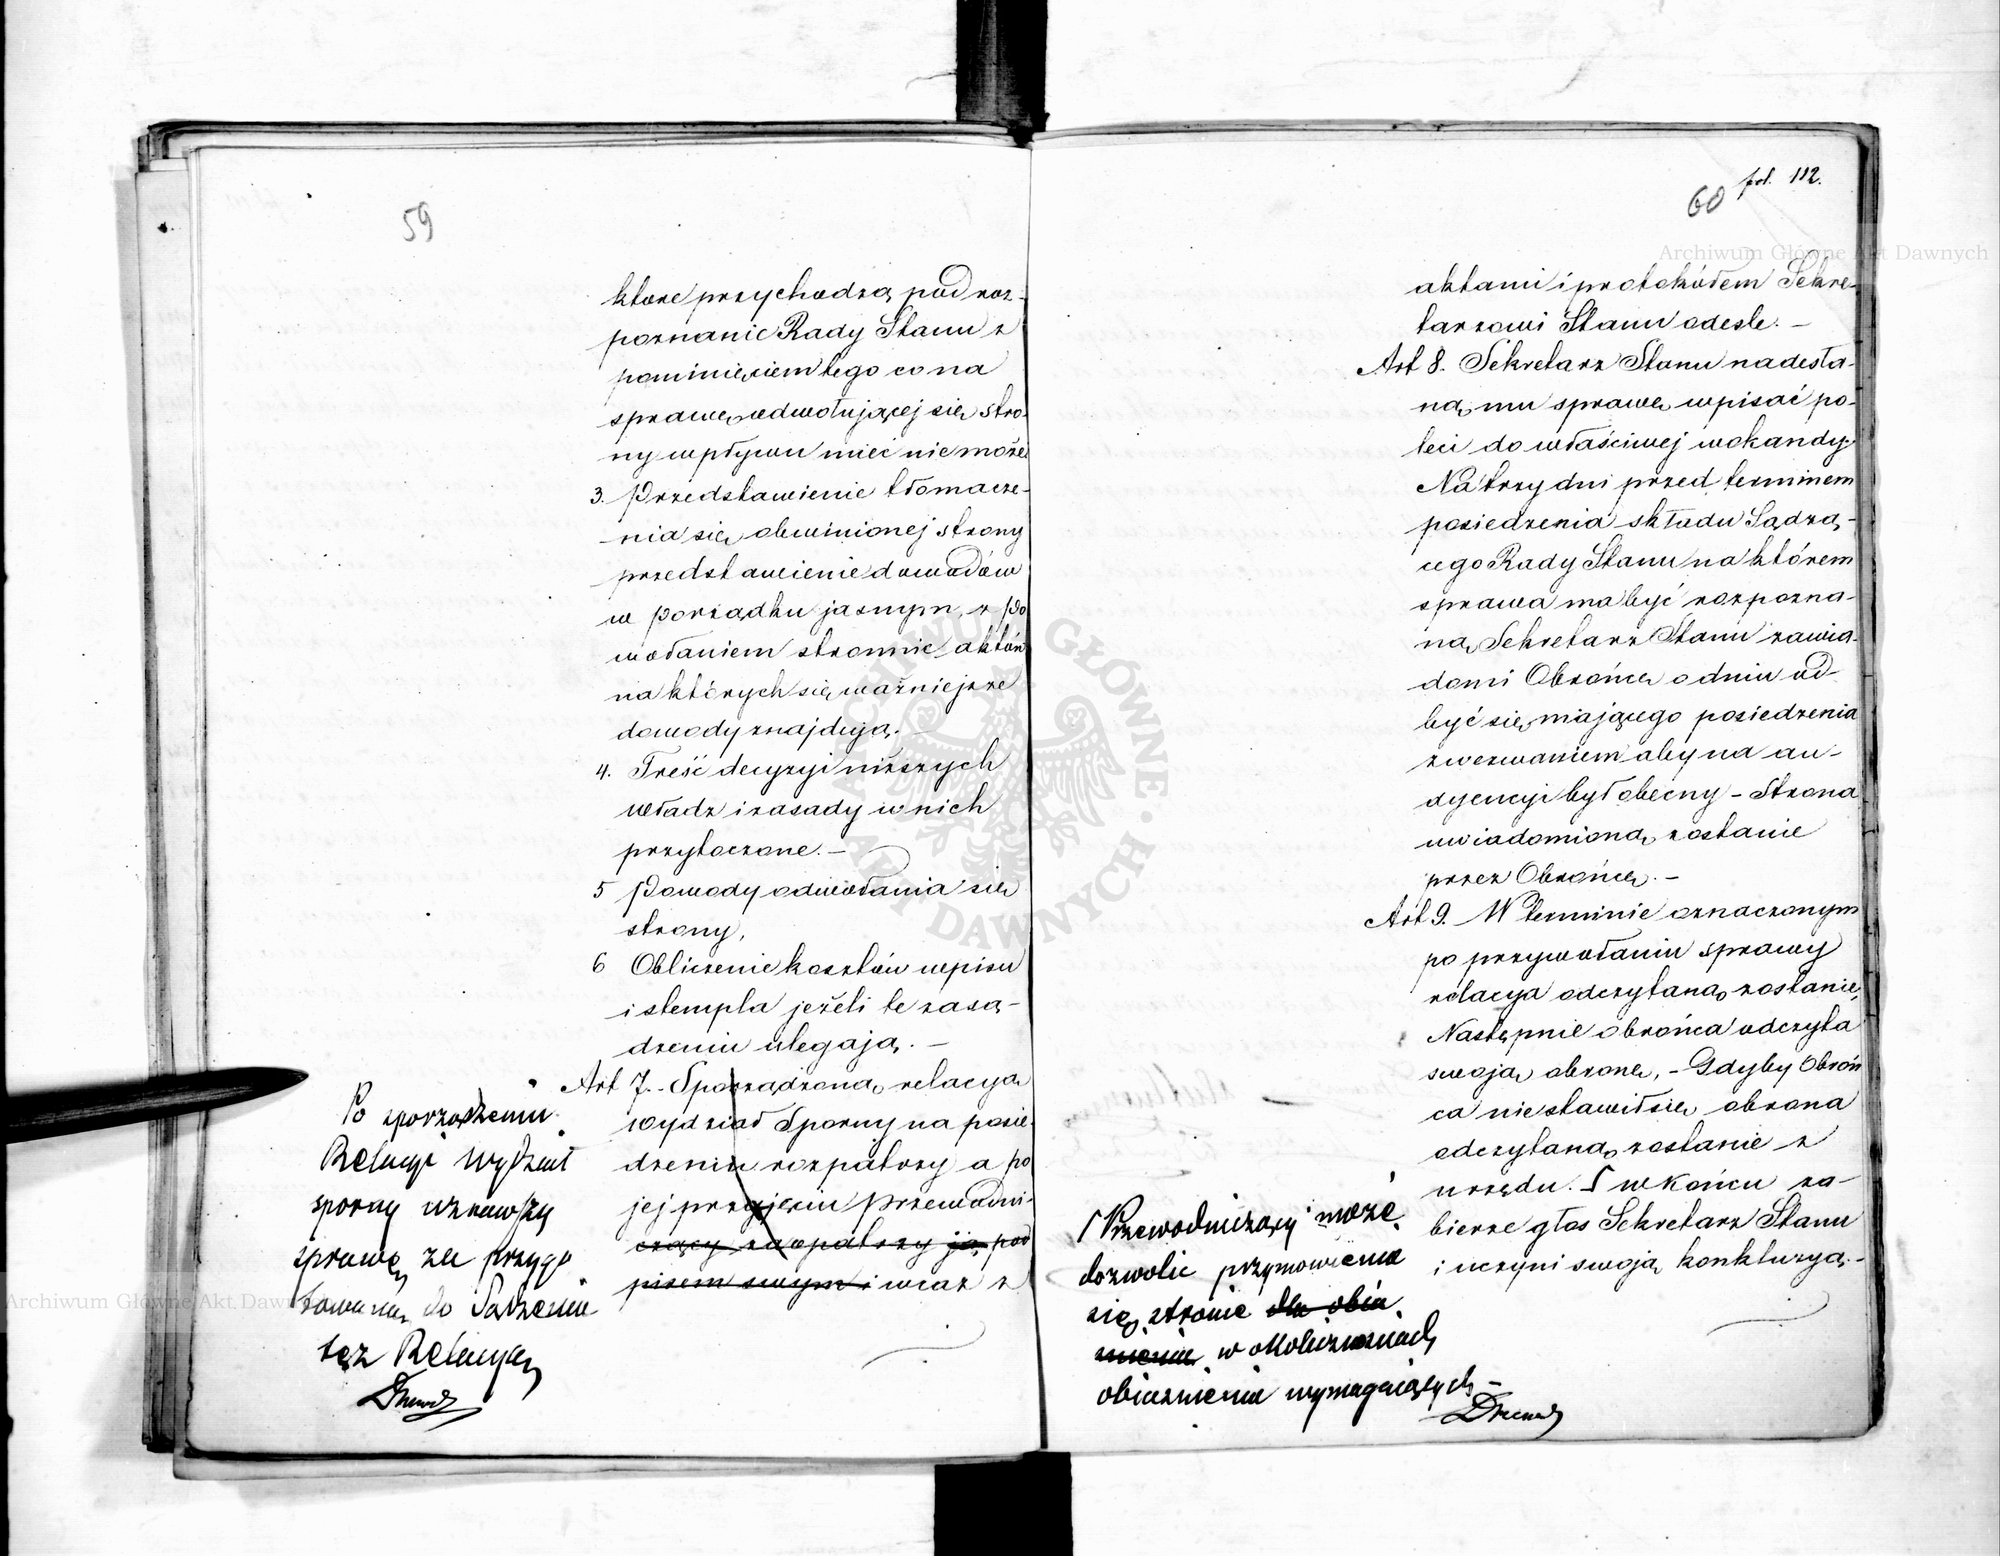 59
ktore przychodzą pod roz-
poznanie Rady Stanu z
pominięciem tego co na
sprawę odwołującej się stro-
ny wpływu mieć nie może
3. Przedstawienie tłomacze-
nia się obwinionej strony
przedstawienie dowodów
w porządku jasnym, z po
wołaniem stronnic aktów
na których się ważniejsze
dowody znajdują. -
4. Treść decyzyi niższych
władz i zasady w nich
przytoczone. -
5 Powody odwołania się
strony,
6 Obliczenie kosztów wpisu
i stempla jeżeli te zasą-
dzeniu ulegają. -
Art 7. - Sporządzoną relacyą
wydział Sporny na posie-
dzeniu rozpatrzy a po
jej przyjęciu Przewodni-
czący zaopatrzy ją pod
pisem swym i wraz z
Po sporządzeniu
Relacyi wydział
sporny uznawszy
sprawę za przygo
towaną do Sądzenia
też Relacyą
60 fol. 112.
aktami i protokółem Sekre-
tarzowi Stanu odeśle. -
Art 8. Sekretarz Stanu nadesła-
ną mu sprawę wpisać po-
leci do właściwej wokandy.
Na trzy dni przed terminem
posiedzenia składu Sądzą-
cego Rady Stanu na którem
sprawa ma być rozpozna-
ną, Sekretarz Stanu zawia-
domi Obrońcę o dniu od-
być się mającego posiedzenia
z wezwaniem aby na au-
dyencyi był obecny - Strona
uwiadomioną zostanie
przez Obrońcę. -
Art 9. W terminie oznaczonym
po przywołaniu sprawy
relacya odczytaną zostanie,
Następnie obrońca odczyta
swoją obronę, - Gdyby Obroń
ca nie stawił się obrona
odczytaną zostanie z
urzędu. ſ w końcu za-
bierze głos Sekretarz Stanu
i uczyni swoją konkluzyą. -
ſ Przewodniczący może
dozwolić przymówienia
się stronie dla obja
śnienia w okolicznościach
objaśnienia wymagających -
Archiwum Główne Akt Dawnych
ARCHIWUM GŁÓWNE AKT DAWNYCH
Archiwum Główne Akt Dawnych